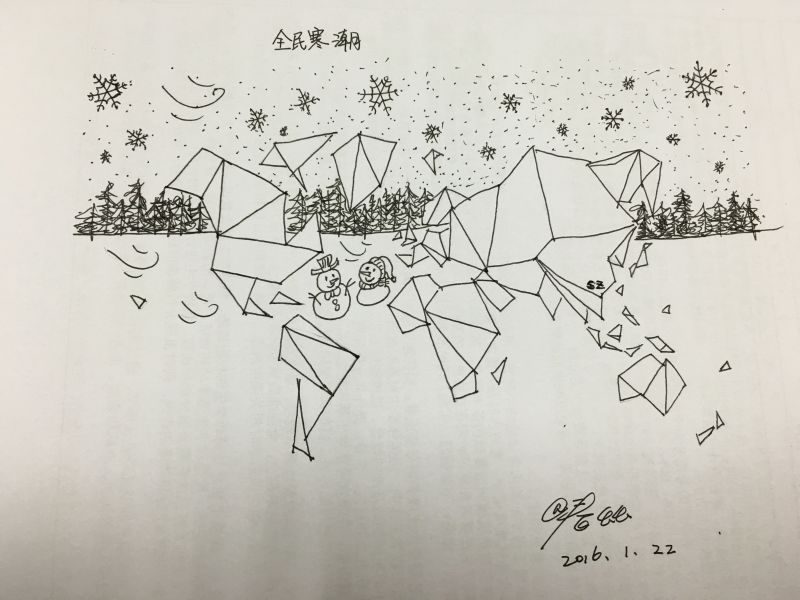 全民寒潮
SZ
2016.1.22